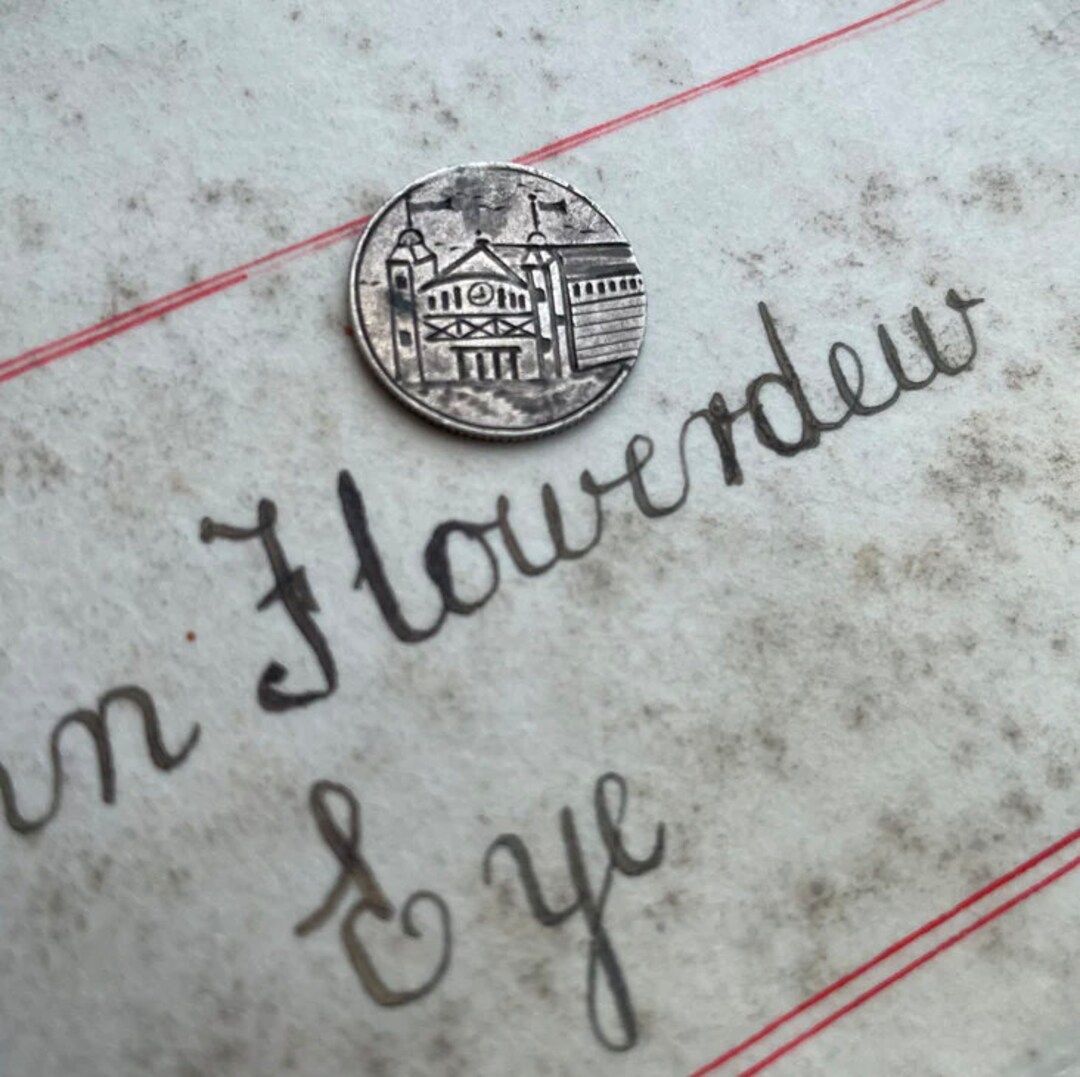 Flowerdew
Eye